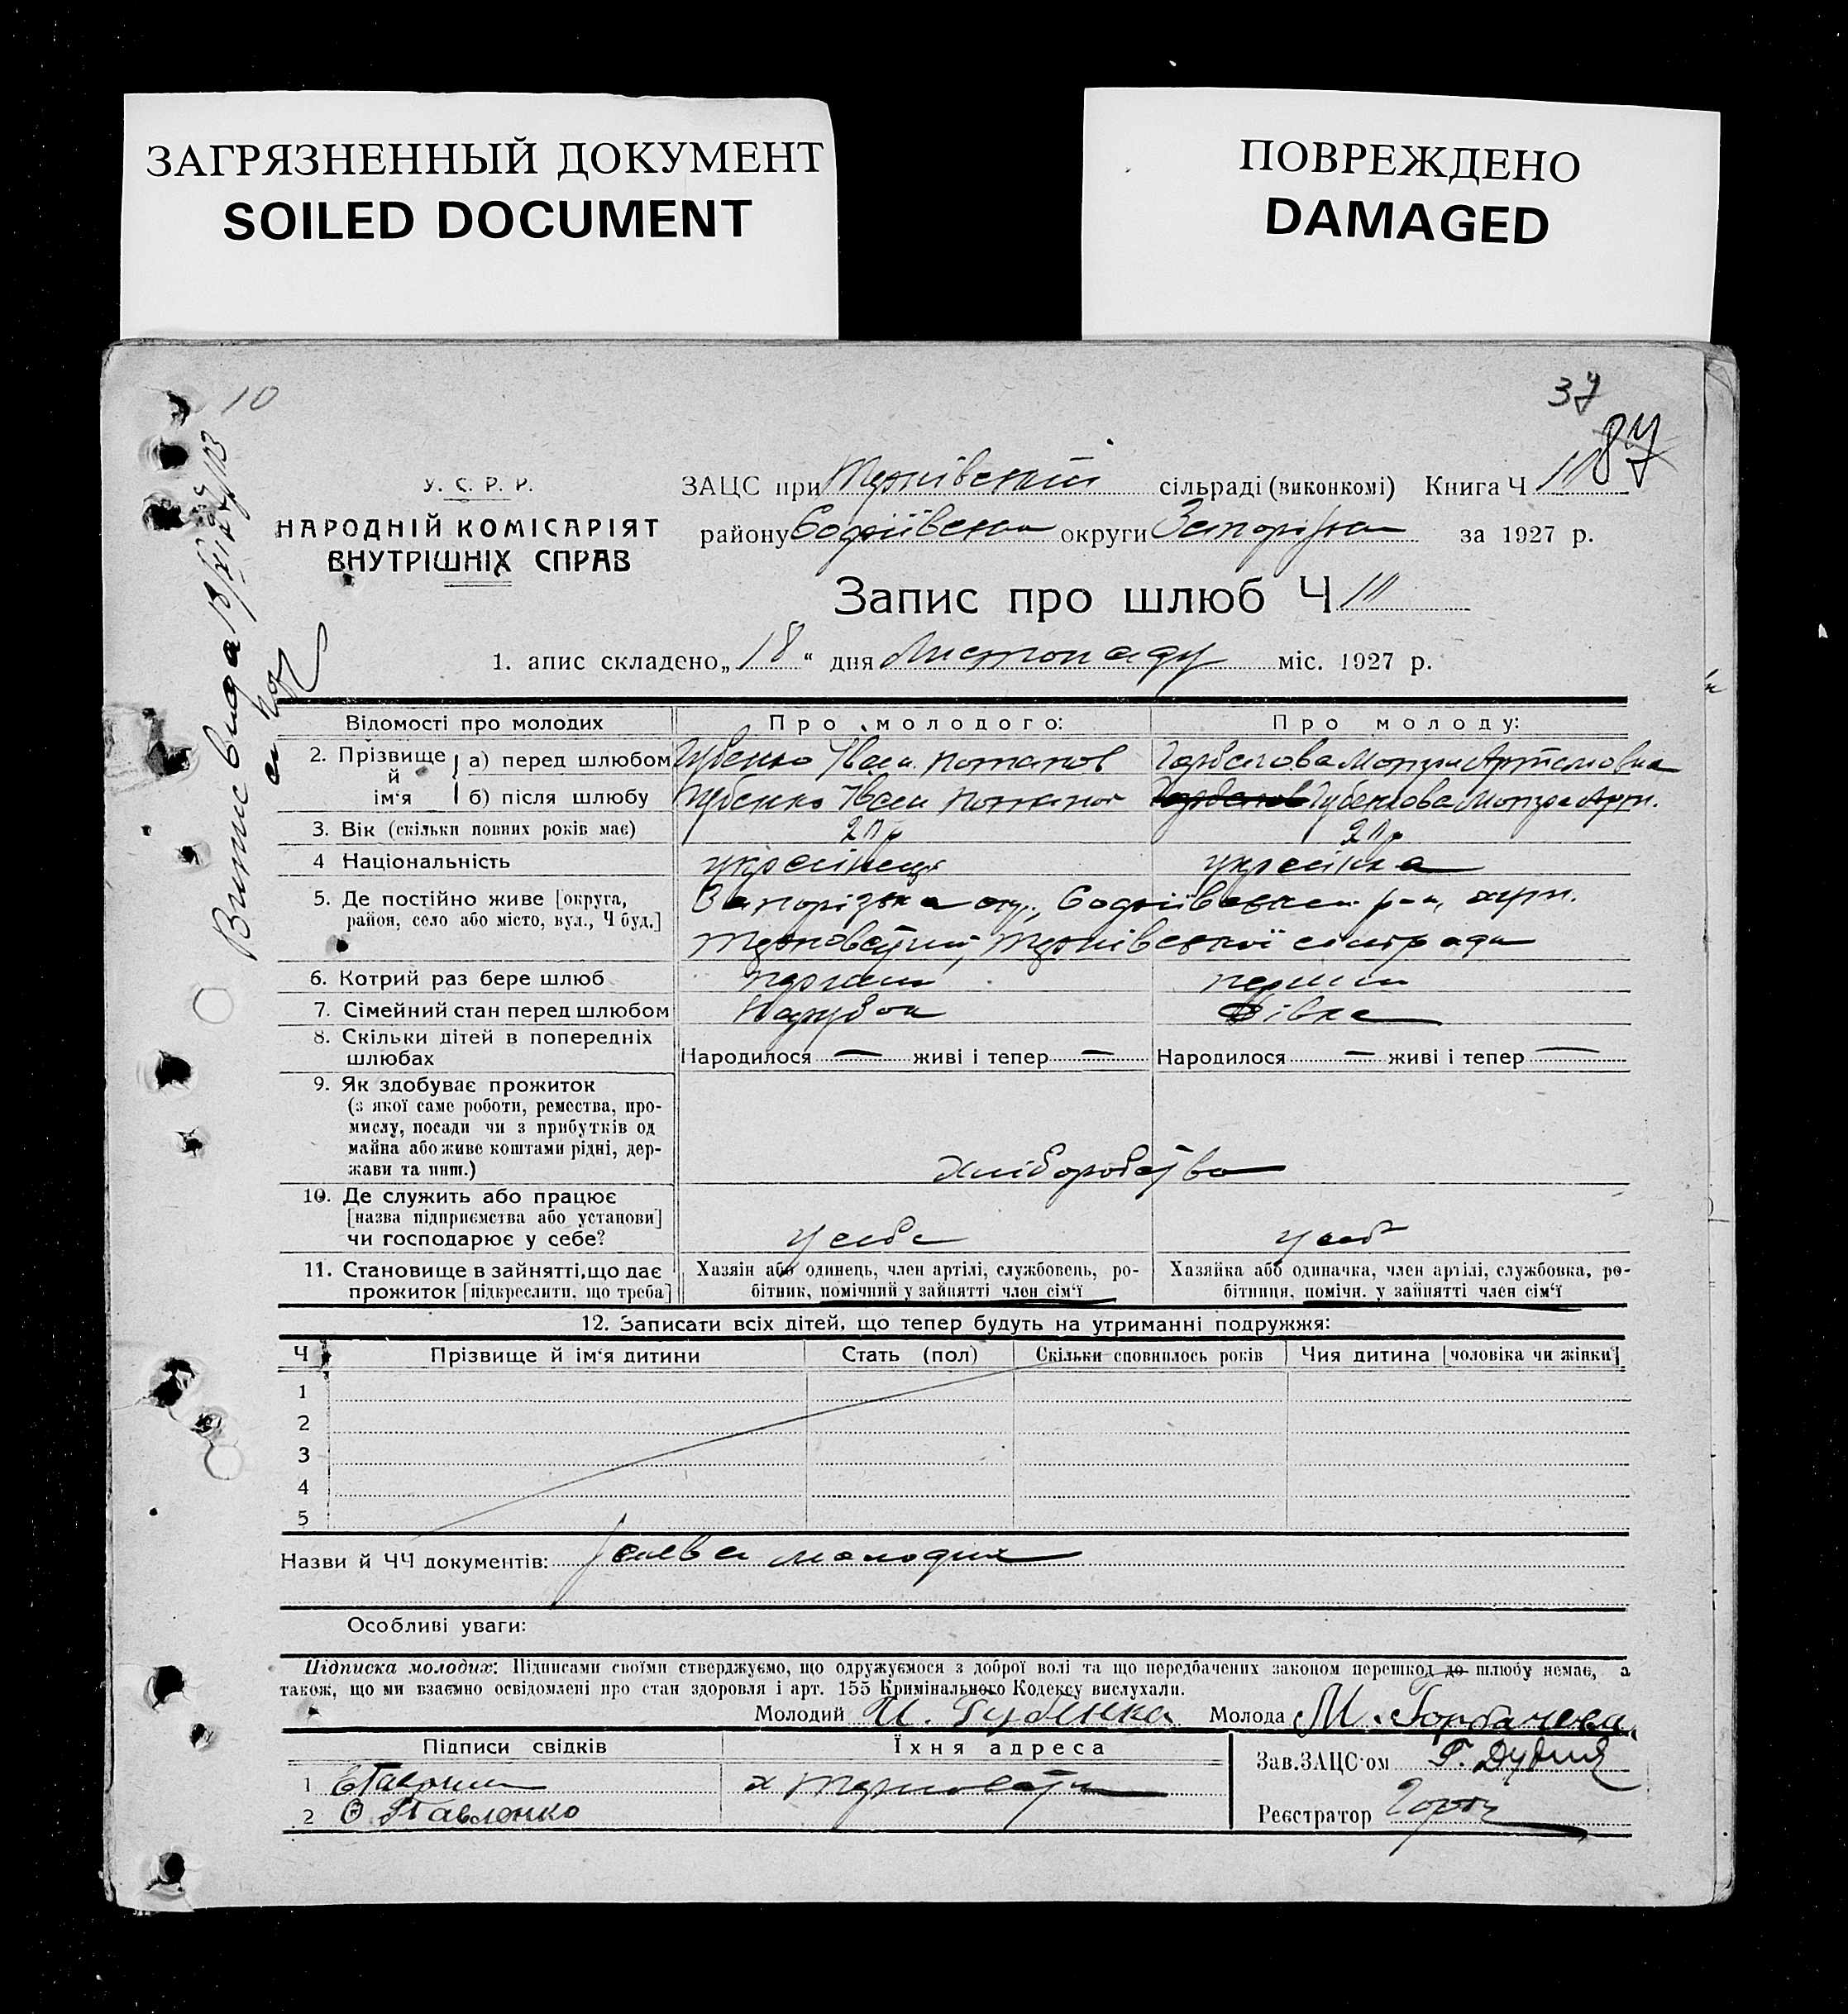 ЗАГРЯЗНЕННЫЙ ДОКУМЕНТ
SOILED DOCUMENT
ПОВРЕЖДЕНО
DAMAGED
10
37
87
У. С. Р. Р.
НАРОДНІЙ КОМІСАРІЯТ
ВНУТРІШНІХ СПРАВ
ЗАЦС при Тернівській сільраді (виконкомі) Книга Ч
району Софіївськ округи Запоріжка за 1927 р.
Запис про шлюб Ч 111
1. апис складено „18“ дня Листопаду міс. 1927 р.
Випис видав
Відомості про молодих Про молодого: Про молоду:
2. Прізвище й ім‘я а) перед шлюбом Губенко Іван Потапов Горбачова Мотря Артемовна
б) після шлюбу Губенко Іван Потапов Губенкова Мотря Арт.
3. Вік (скільки повних років має)
4 Національність українець українка
5. Де постійно живе [округа, район, село або місто, вул., Ч буд.] Запорізька окр., Софіївського р-н, хут.
Терноватий, Тернівської сільради
6. Котрий раз бере шлюб перший перший
7. Сімейний стан перед шлюбом Парубок Дівка
8. Скільки дітей в попередніх шлюбах Народилося — живі і тепер — Народилося — живі і тепер —
9. Як здобуває прожиток
(з якої саме роботи, ремества, про-
мислу, посади чи з прибутків од
майна або живе коштами рідні, дер-
жави та инш.) Хліборобство
10. Де служить або працює
[назва підприємства або установи]
чи господарює у себе? у себе у себе
11. Становище в зайнятті, що дає прожиток [підкреслити, що треба]
Хазяїн або одинець, член артілі, службовець, ро-
бітник, помічний у зайнятті член сім‘ї
Хазяйка або одиначка, член артілі, службовка, ро-
бітниця, помічн. у зайнятті член сім‘ї
12. Записати всіх дітей, що тепер будуть на утриманні подружжя:
Ч Прізвище й ім‘я дитини Стать (пол) Скільки сповнилось років Чия дитина [чоловіка чи жінки]
1
2
3
4
5
Назви й ЧЧ документів: Заява молодих
Особливі уваги:
Підписка молодих: Підписами своїми стверджуємо, що одружуємося з доброї волі та що передбачених законом перешкод до шлюбу немає, а
також, що ми взаємно освідомлені про стан здоровля і арт. 155 Кримінального Кодексу вислухали.
Молодий И. Губенка Молода М. Горбачева
Підписи свідків Їхня адреса
1 х Терновати
2 Павленко
Зав. ЗАЦС‘ом
Реєстратор